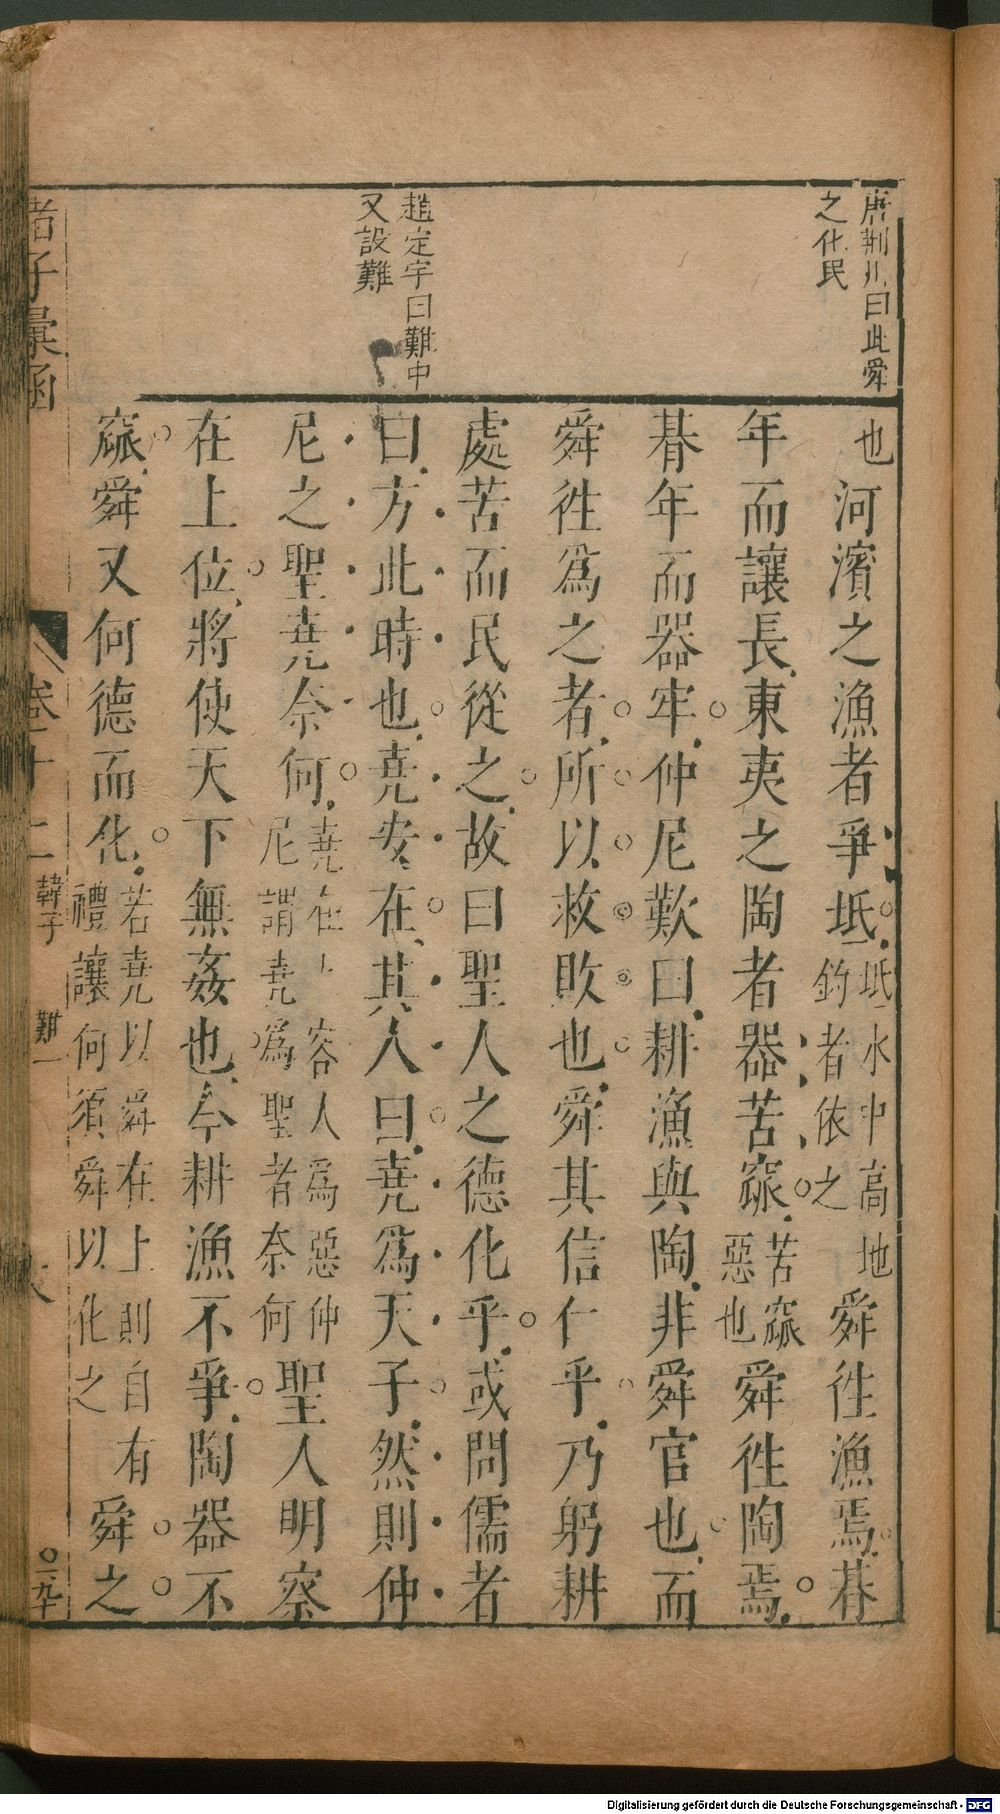 唐荆川曰此舜
之化民
趙定宇曰難中
又設難
也河濱之漁者爭坻坻水中高地釣者依之舜徃漁焉朞
年而讓長東夷之陶者器苦窳苦窳惡也舜徃陶焉
朞年而器牢仲尼歎曰耕漁與陶非舜官也而
舜徃爲之者所以救敗也舜其信仁乎乃躬耕
處苦而民從之故曰聖人之德化乎或問儒者
曰方此時也堯安在其人曰堯爲天子然則仲
尼之聖堯奈何堯在上容人爲惡仲尼謂堯爲聖者奈何聖人明察
在上位將使天下無姦也今耕漁不爭陶器不
窳舜又何德而化若堯以舜在上則自有禮讓何須舜以化之舜之
諸子彙函
卷十二
韓子
難一